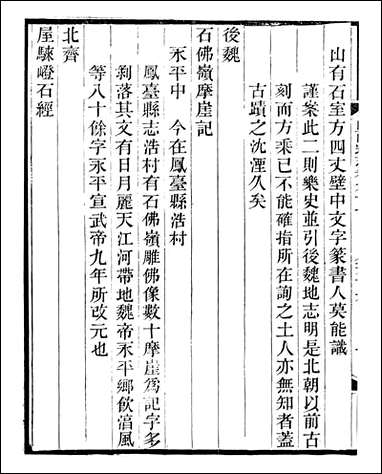 山有石室方四丈壁中文字篆書人莫能識
謹案此二則樂史並引後魏地志明是北朝以前古
刻而方乘已不能確指所在詢之土人亦無知者蓋
古蹟之沈湮久矣
後魏
石佛嶺摩崖記
永平中　今在鳳臺縣浩村
鳳臺縣志浩村有石佛嶺雕佛像數十摩崖為記字多
剝落其文有日月麗天江河帶地魏帝永平鄉飲淯風
等八十餘字永平宣武帝九年所改元也
北齊
屋騋嶝石經